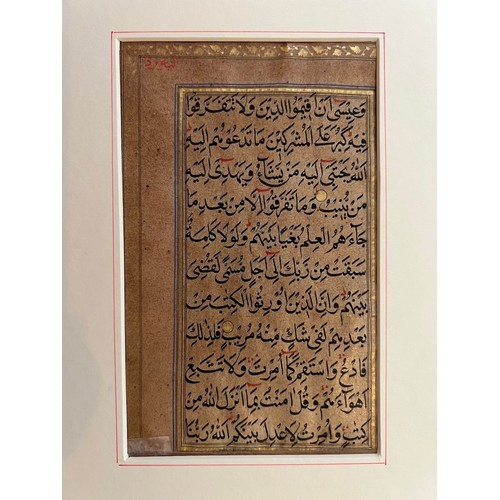 وَعِيسَىٰ أَنْ أَقِيمُوا الدِّينَ وَلَا تَتَفَرَّقُوا
فِيهِ كَبُرَ عَلَى الْمُشْرِكِينَ مَا تَدْعُوهُمْ إِلَيْهِ
اللَّهُ يَجْتَبِي إِلَيْهِ مَنْ يَشَاءُ وَيَهْدِي إِلَيْهِ
مَنْ يُنِيبُ وَمَا تَفَرَّقُوا إِلَّا مِنْ بَعْدِ مَا
جَاءَهُمُ الْعِلْمُ بَغْيًا بَيْنَهُمْ وَلَوْلَا كَلِمَةٌ
سَبَقَتْ مِنْ رَبِّكَ إِلَىٰ أَجَلٍ مُسَمًّى لَقُضِيَ
بَيْنَهُمْ وَإِنَّ الَّذِينَ أُورِثُوا الْكِتَٰبَ مِنْ
بَعْدِهِمْ لَفِي شَكٍّ مِنْهُ مُرِيبٍ فَلِذَٰلِكَ
فَادْعُ وَاسْتَقِمْ كَمَا أُمِرْتَ وَلَا تَتَّبِعْ
أَهْوَاءَهُمْ وَقُلْ آمَنْتُ بِمَا أَنْزَلَ اللَّهُ مِنْ
كِتَٰبٍ وَأُمِرْتُ لِأَعْدِلَ بَيْنَكُمُ اللَّهُ رَبُّنَا